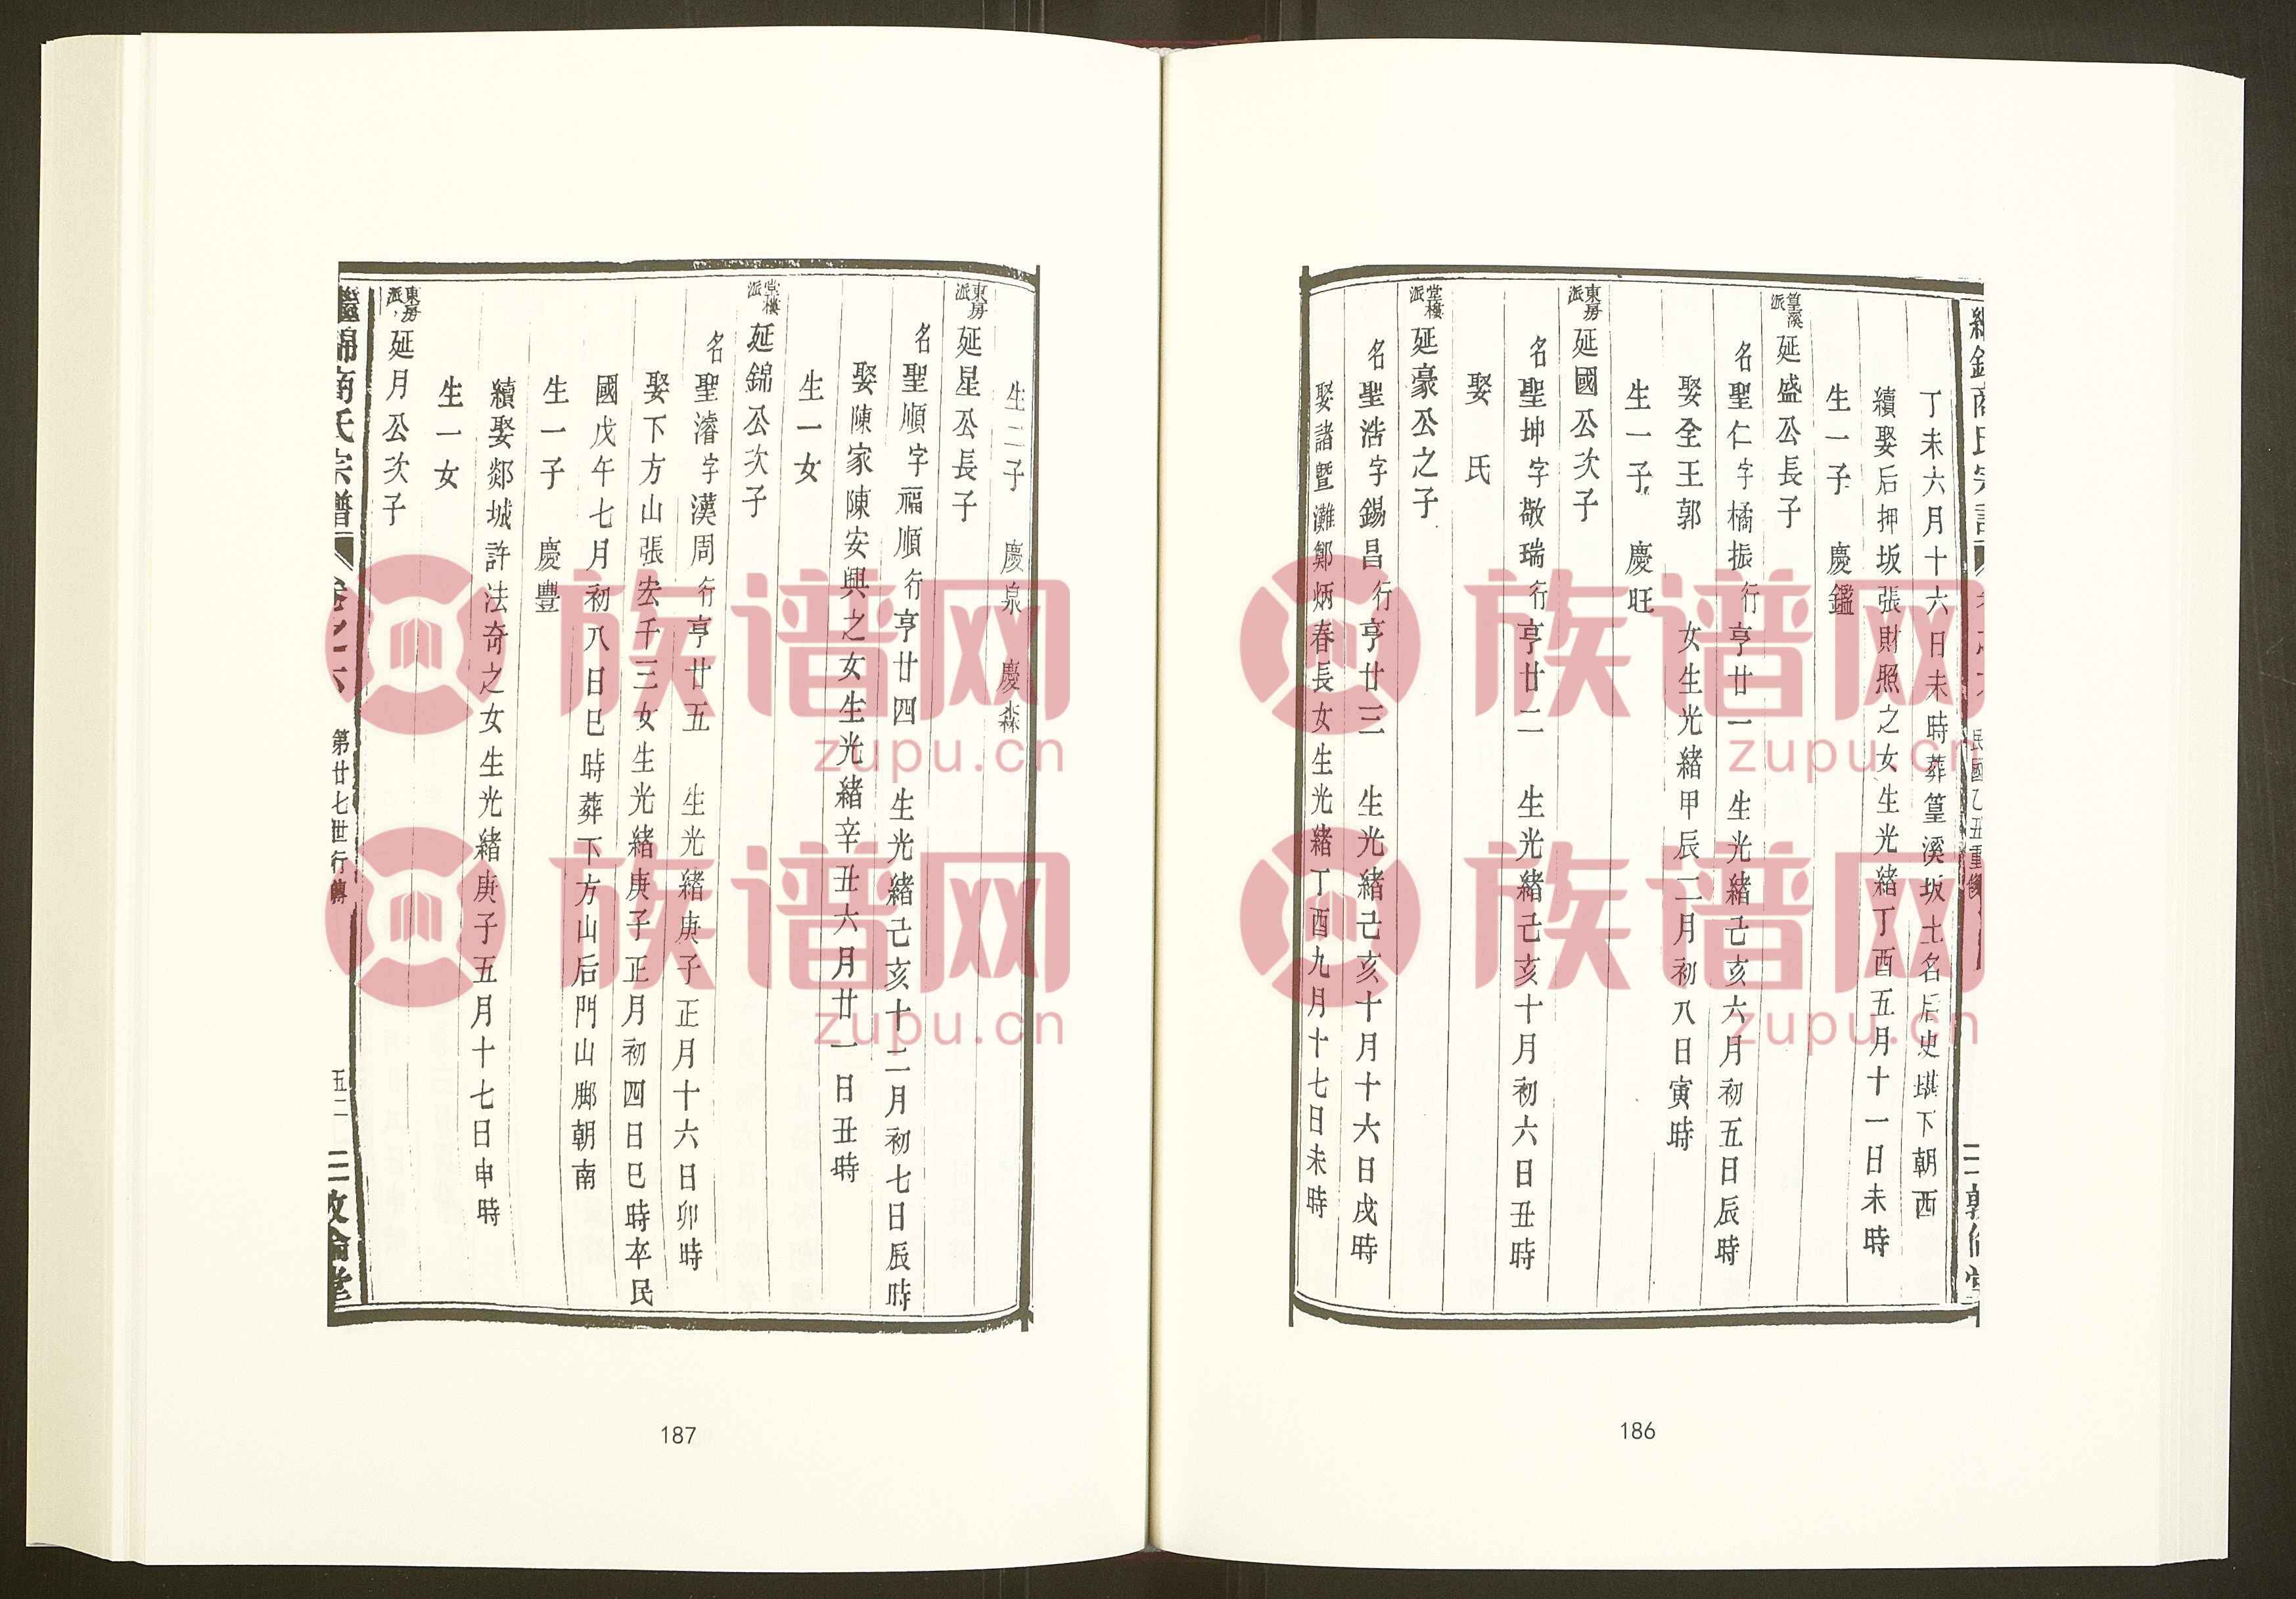 丁未六月十六日未時葬篁溪坂土名后史堪下朝西
續娶后押坂張財照之女生光緒丁酉五月十一日未時
生一子 慶鑑
篁溪派 延盛公長子
名聖仁字橘振行亨廿一 生光緒己亥六月初五日辰時
娶全王郭 女生光緒甲辰二月初八日寅時
生一子 慶旺
東房派 延國公次子
名聖坤字敬瑞行亨廿二 生光緒己亥十月初六日丑時
娶 氏
堂樓派 延豪公之子
名聖浩字錫昌行亨廿三 生光緒己亥十月十六日戌時
娶諸暨灘鄭炳春長女生光緒丁酉九月十七日未時
民國乙丑重修
186
生二子 慶泉 慶森
東房派 延星公長子
名聖順字福順行亨廿四 生光緒己亥十二月初七日辰時
娶陳家陳安興之女生光緒辛丑六月廿一日丑時
生一女
堂樓派 延錦公次子
名聖濬字漢周行亨廿五 生光緒庚子正月十六日卯時
娶下方山張宏千三女生光緒庚子正月初四日巳時卒民
國戊午七月初八日巳時葬下方山后門山脚朝南
生一子 慶豐
續娶郯城許法奇之女生光緒庚子五月十七日申時
生一女
東房派 延月公次子
繼錦商氏宗譜 卷之六 第廿七世行傳 五二 敦倫堂
187
族谱网
zupu.cn
族谱网
zupu.cn
族谱网
zupu.cn
族谱网
zupu.cn